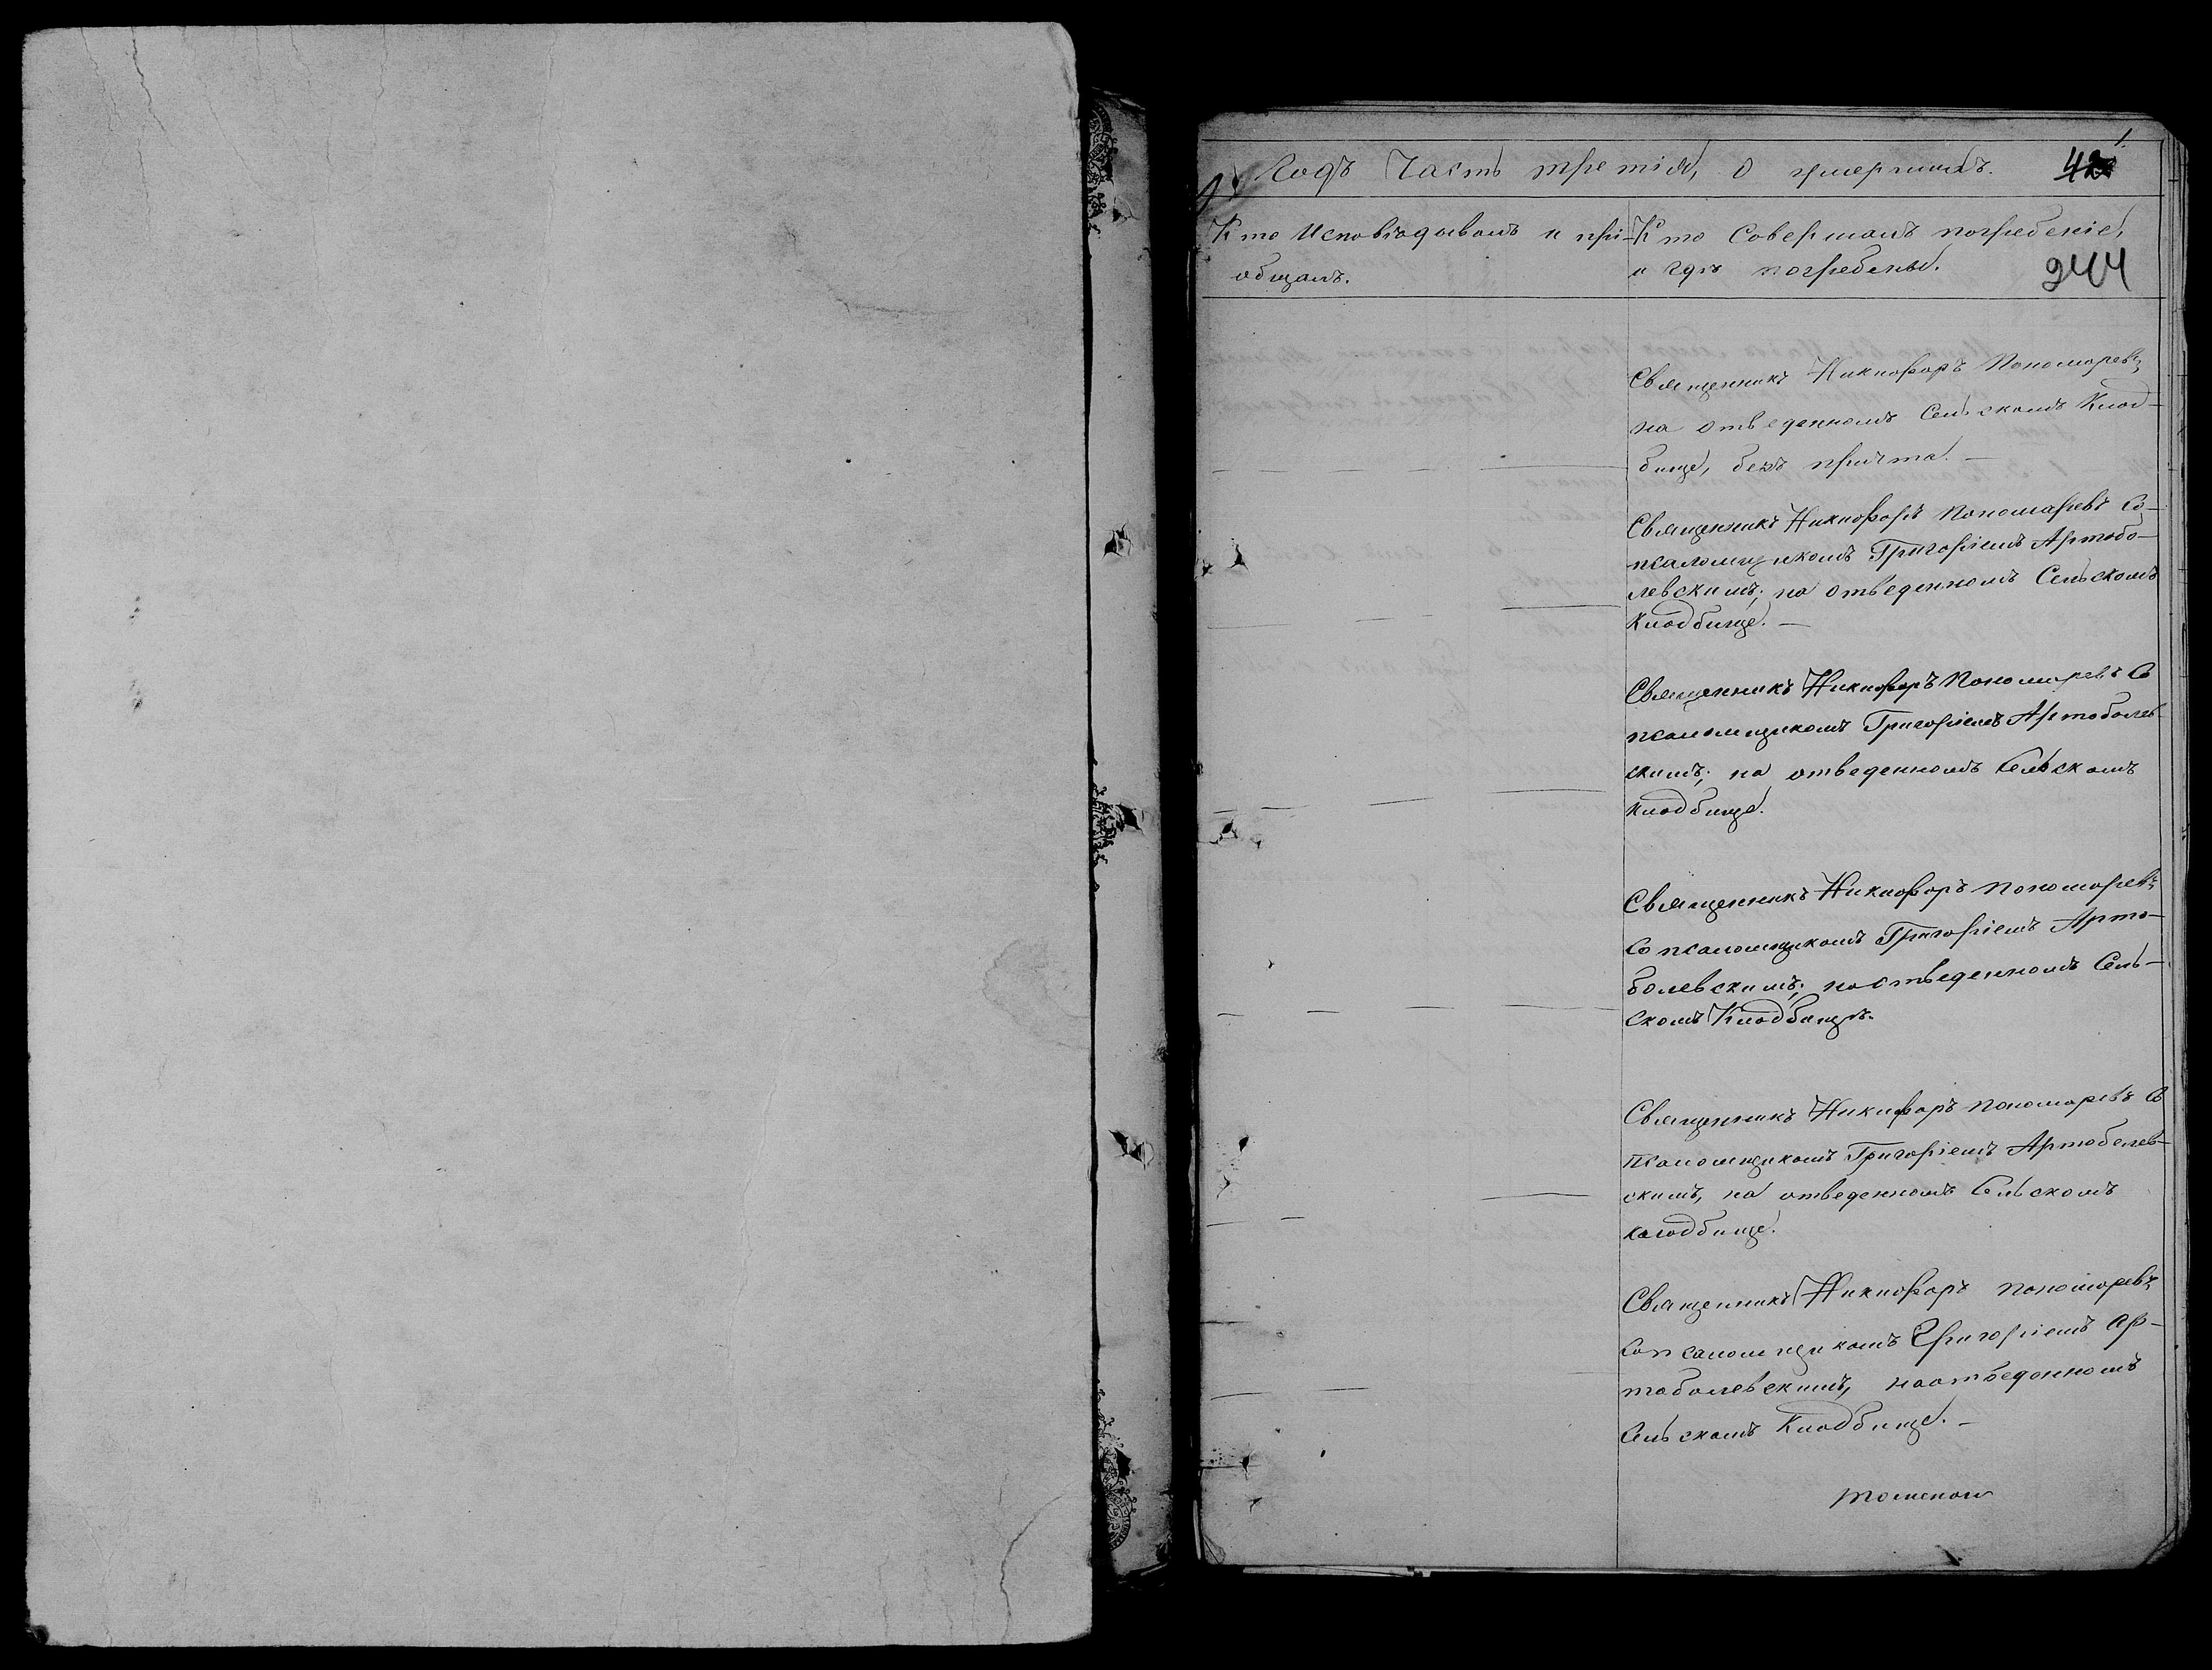 1.
Годъ Часть третія, о умершихъ. 42
Кто Исповѣдывалъ и прі-
общалъ.
Кто Совершалъ погребеніе,
и гдѣ погребены.
244
Священникъ Никифоръ Пономаревъ,
на отведенномъ Сельскомъ Клад-
бище, безъ причта. —
Священникъ Никифоръ Пономаревъ Со-
псаломщикомъ Григоріемъ Артобо-
левскимъ; на отведенномъ Сельскомъ
Кладбище. —
Священникъ Никифоръ Пономаревъ Со
псаломщикомъ Григоріемъ Артоболев-
скимъ; на отведенномъ Сельскомъ
Кладбище.
Священникъ Никифоръ Пономаревъ,
Со псаломщикомъ Григоріемъ Арто-
болевскимъ; на отведенномъ Сель-
скомъ Кладбищѣ.
Священникъ Никифоръ Пономаревъ Со
псаломщикомъ Григоріемъ Артоболев-
скимъ, на отведенномъ Сельскомъ
кладбище.
Священникъ Никифоръ Пономаревъ,
Со псаломщикомъ Григоріемъ Ар-
тоболевскимъ, на отведенномъ
Сельскомъ Кладбище. —